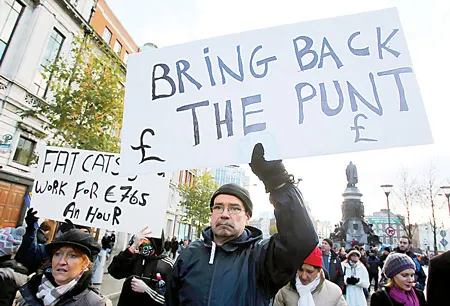 BRING BACK £
THE PUNT
£ £
FAT CATS
WORK FOR €765
AN HOUR